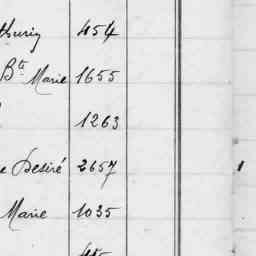 thurin 454
Bte Marie 1655
1263
e Desiré 2657
Marie 1035